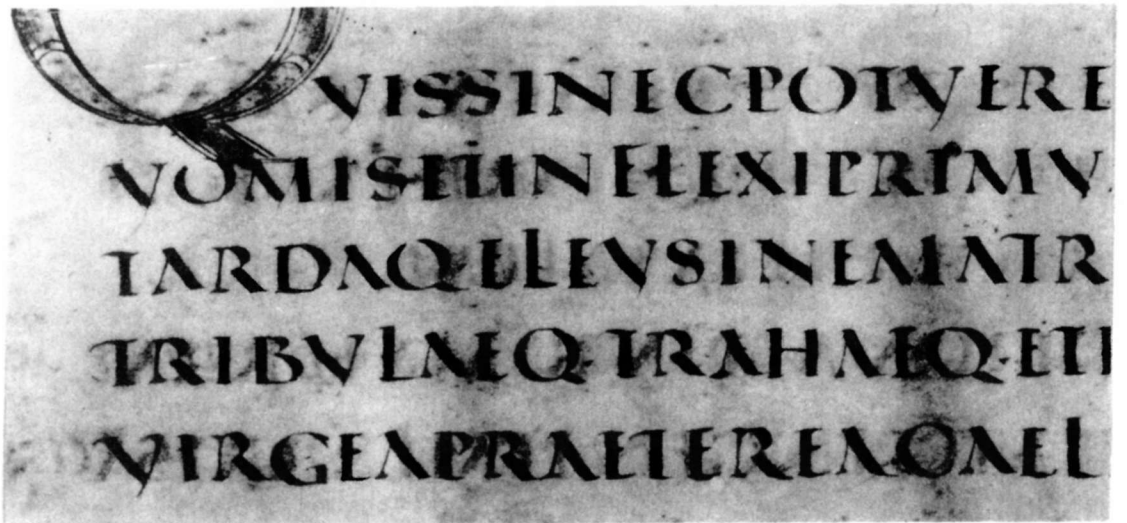 QVISSINECPOTVERE
VOMISETINFLEXIPRIMV
TARDAQELEVSINEMATR
TRIBVLAEQ·TRAHAEQ·ETI
VIRGEAPRAETEREAQAEL